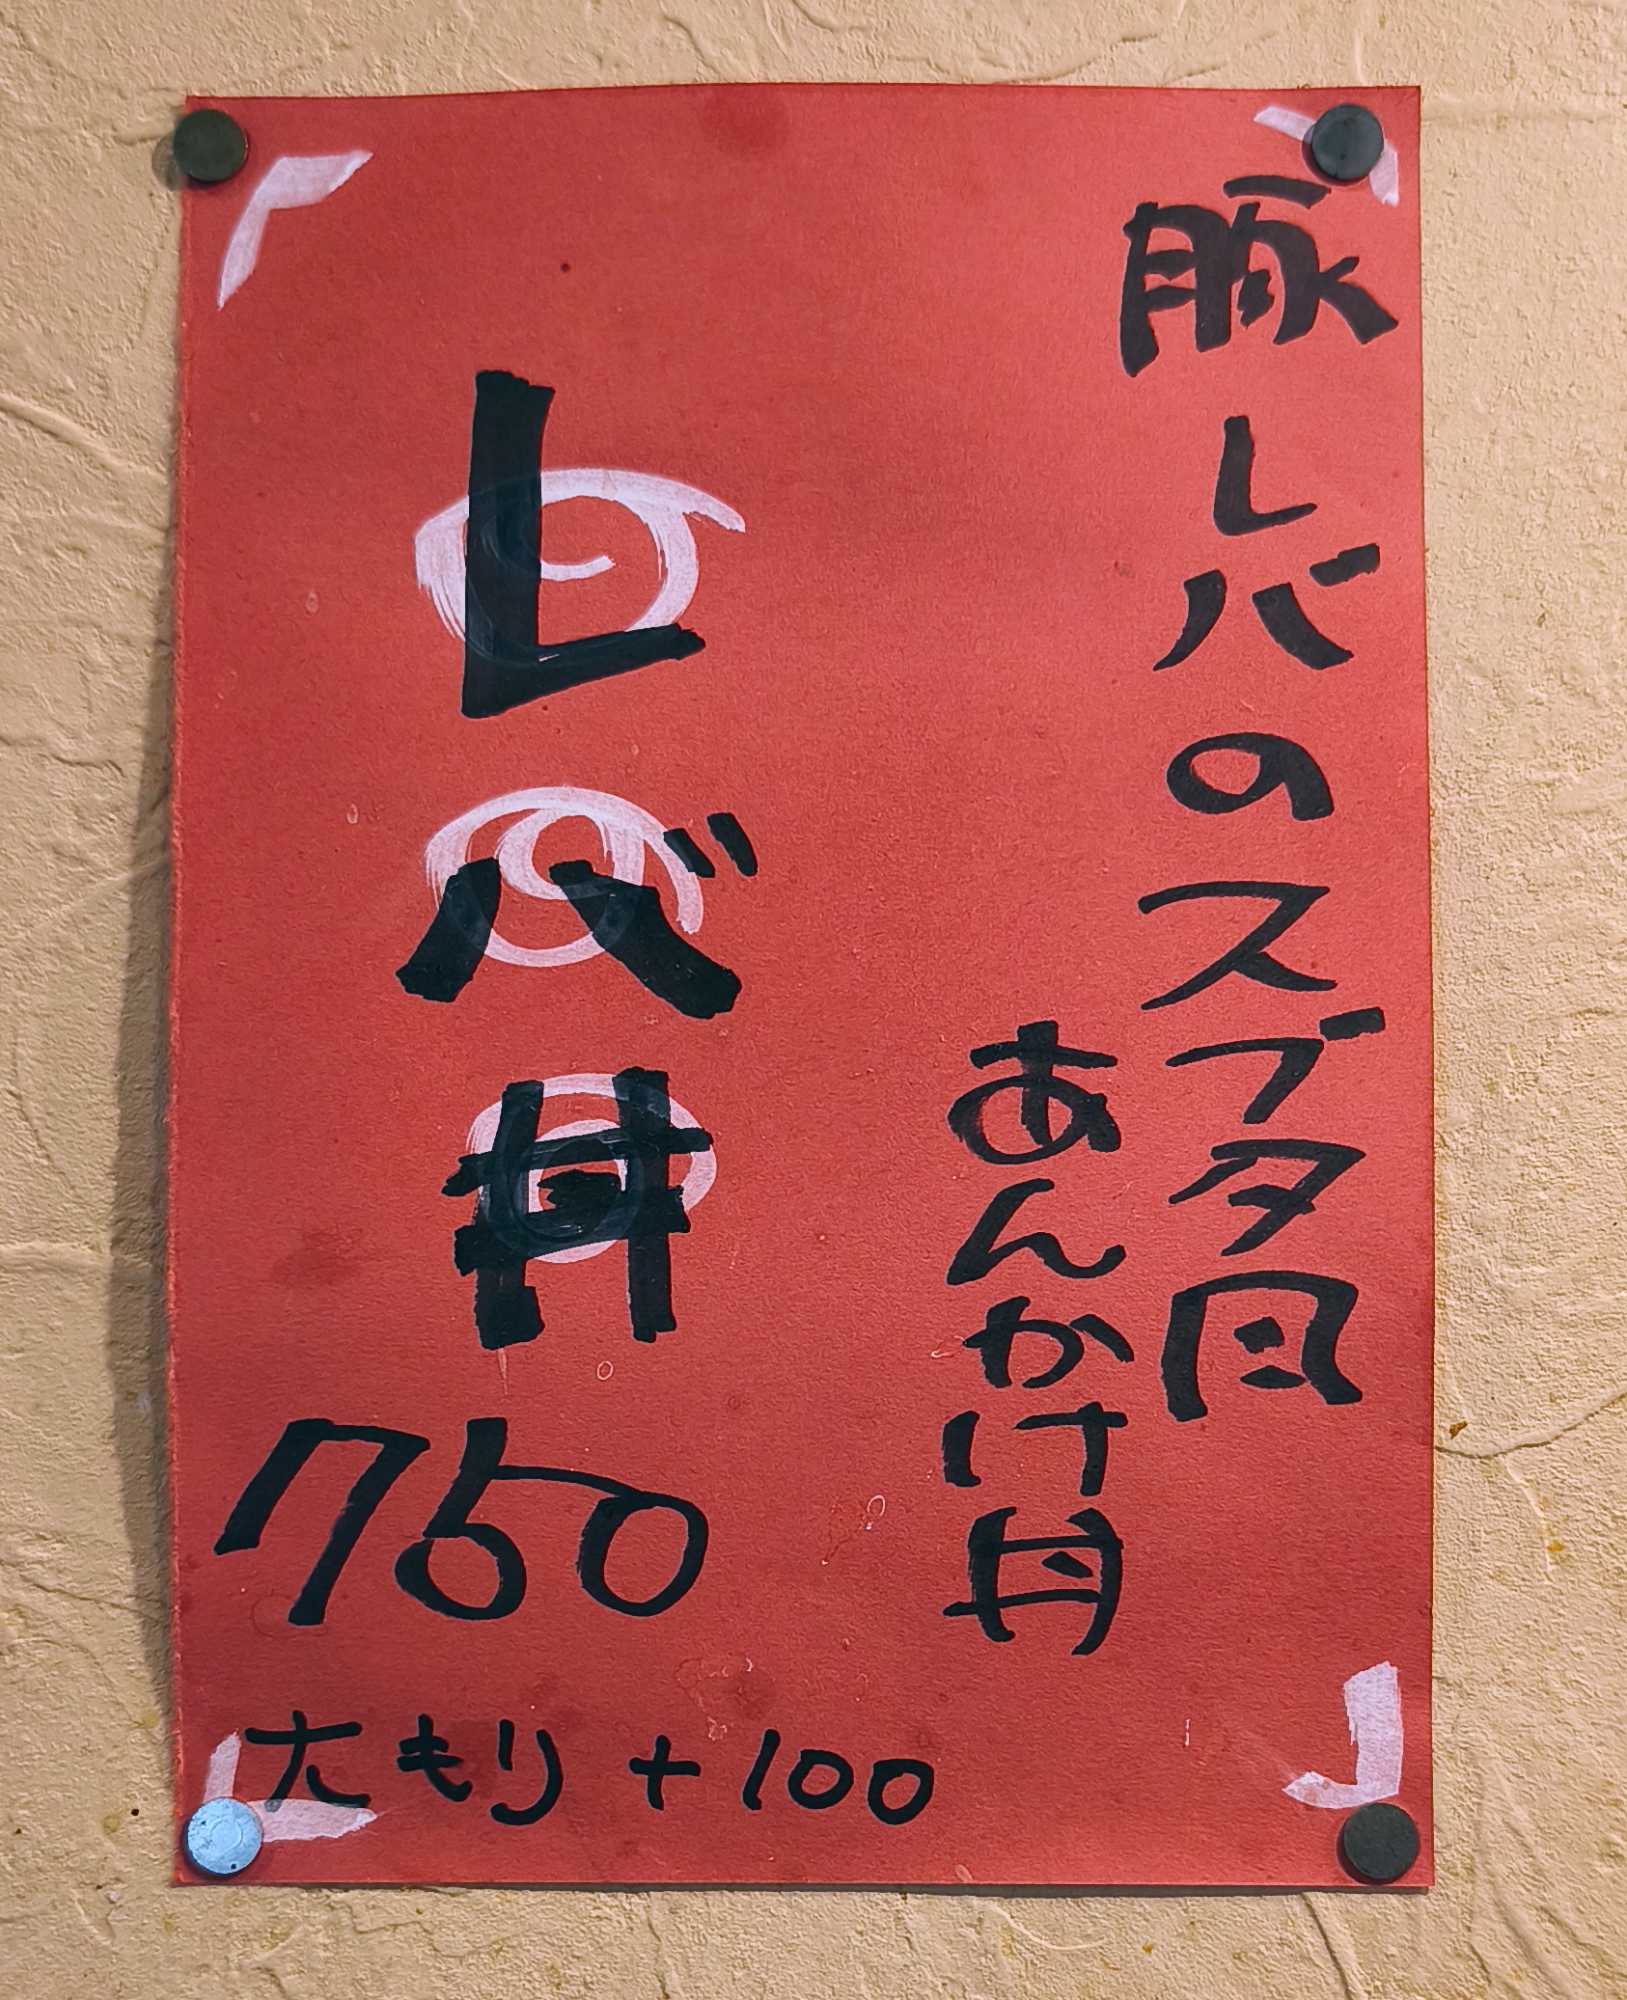 豚レバのスブタ風
あんかけ丼
レバ丼
750
大もり +100